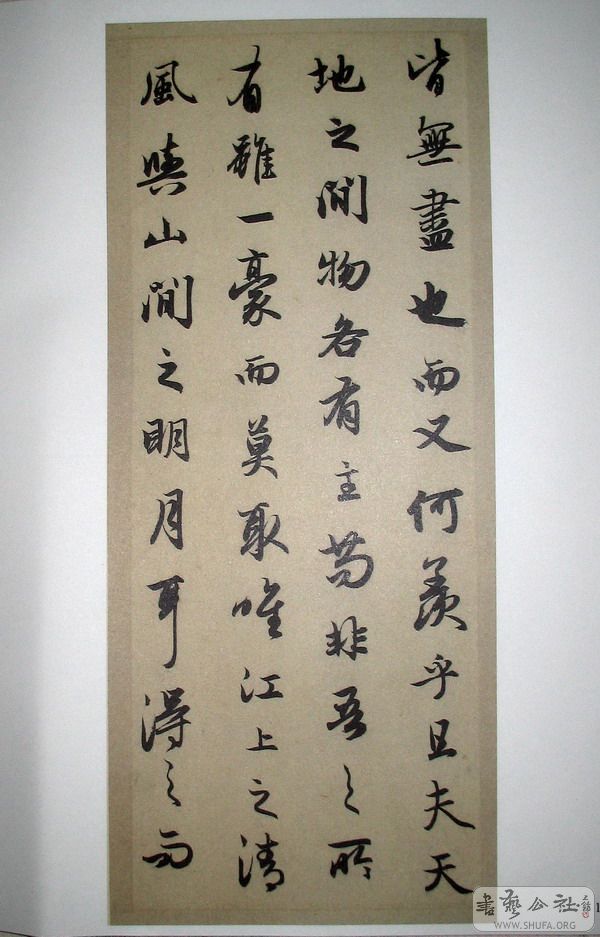 皆無盡也而又何羨乎且夫天
地之間物各有主苟非吾之所
有雖一豪而莫取唯江上之清
風與山間之明月耳得之而
書藝公社
WWW.SHUFA.ORG
1